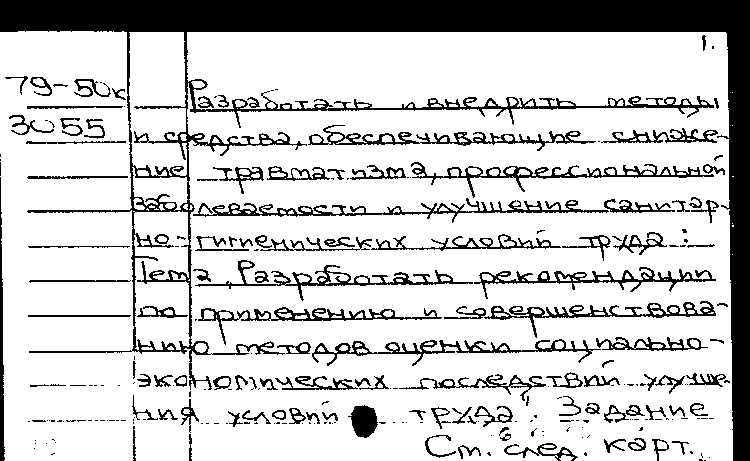 1.
79-50к Разработать и внедрить методы
3055 и средства, обеспечивающие сниже-
ние травматизма, профессиональной
заболеваемости и улучшение санитар-
но-гигиенических условий труда:
Тема „Разработать рекомендации
по применению и совершенствова-
нию методов оценки социально-
экономических последствий улучше-
ния условий труда". Задание
См. след. карт.